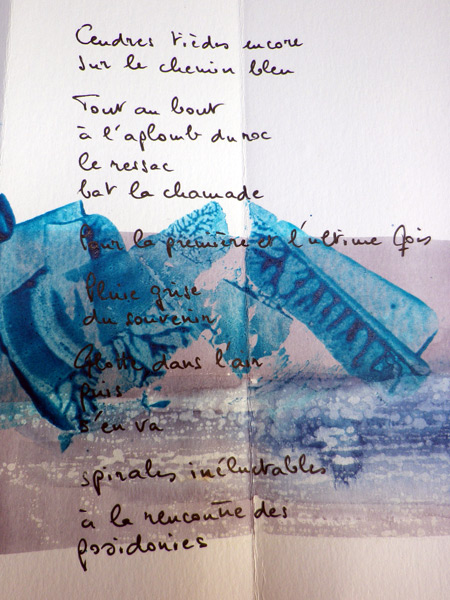 Cendres tièdes encore
sur le chemin bleu
Tout au bout
à l'aplomb du roc
le ressac
bat la chamade
Pour la première et l'ultime fois
Pluie grise
du souvenir
Flotte dans l'air
puis
s'en va
spirales inéluctables
à la rencontre des
posidonies